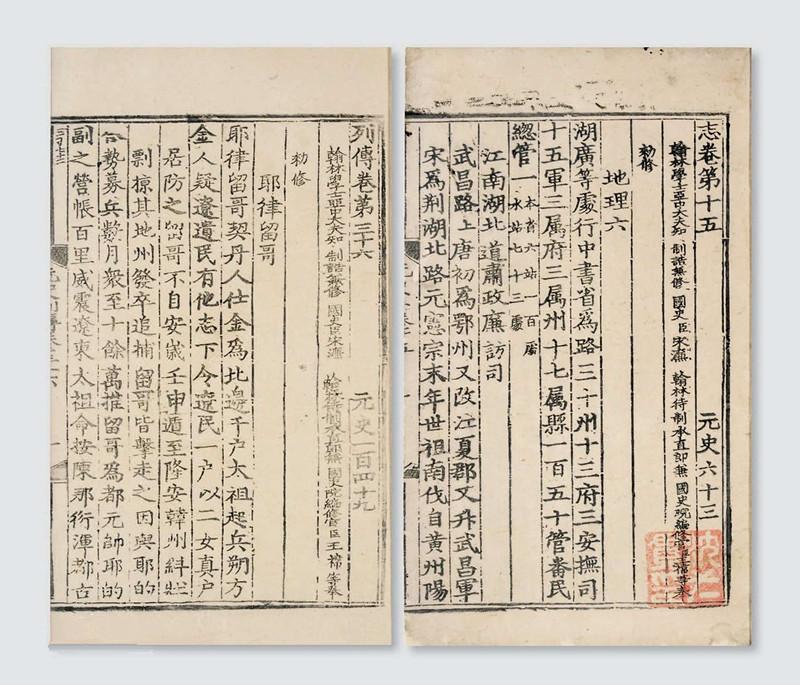 志卷第十五　元史六十三
翰林學士亞中大夫知　制誥兼修　國史臣宋濂　翰林待制承直郎兼　國史院編修官臣王禕等奉
勑修
地理六
湖廣等處行中書省爲路三十州十三府三安撫司
十五軍三属府三属州十七属縣一百五十管番民
總管一　本省六站一百
水站七十三處
江南湖北道肅政廉訪司
武昌路上唐初爲鄂州又改江夏郡又升武昌軍
宋爲荆湖北路元憲宗末年世祖南伐自黄州陽
列傳卷第三十六　元史一百四十九
翰林學士亞中大夫知　制誥兼修　國史臣宋濂　翰林待制承直郎兼　國史院編修官臣王禕等奉
勑修
耶律留哥
耶律留哥契丹人仕金爲北邊千户太祖起兵朔方
金人疑遼遺民有他志下令遼民一户以二女真户
居防之留哥不自安歲壬申遁至隆安韓州糾壯
剽掠其地州發卒追捕留哥皆擊走之因與耶的
合勢募兵數月衆至十餘萬推留哥爲都元帥耶的
副之營帳百里威震遼東太祖命按陳那衍渾都古